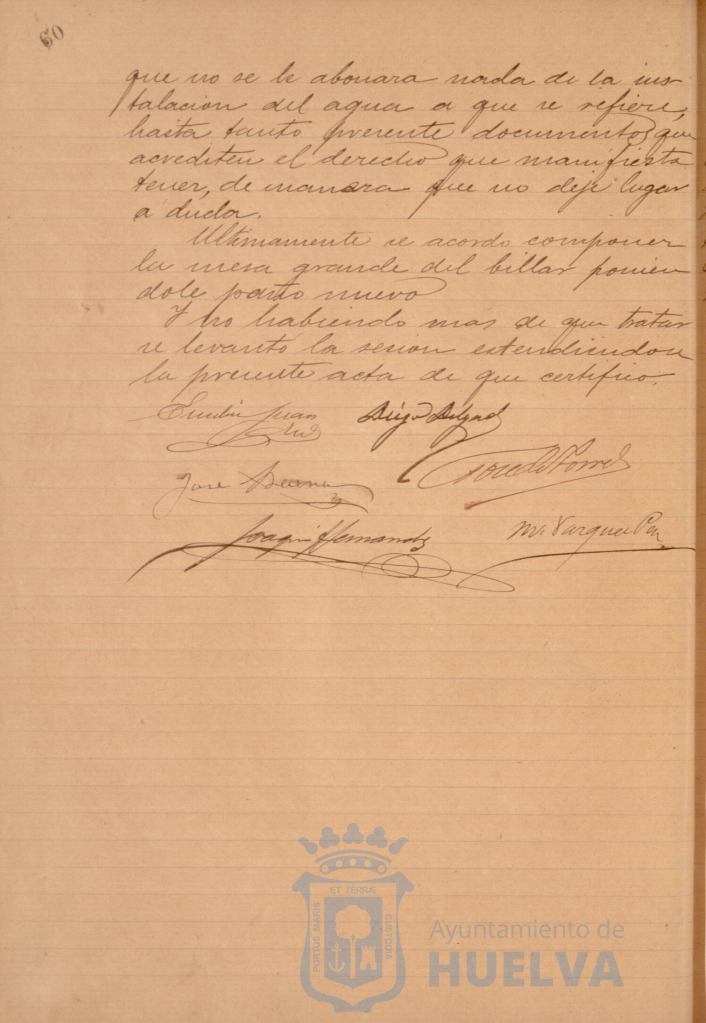 60
que no se le abonara nada de la ins
talacion del agua a que se refiere,
hasta tanto presente documentos que
acrediten el derecho que manifiesta
tener, de manera que no deje lugar
a duda.
Ultimamente se acordo componer
la mesa grande del billar ponien
dole paño nuevo
Y no habiendo mas de que tratar
se levanto la sesion estendiendose
la presente acta de que certifico.
Emilio Juan
Diego Delgado
José
Joaquin Hernandez
M. Vazquez
PORTUS MARIS ET TERRÆ CUSTODIA
Ayuntamiento de
HUELVA